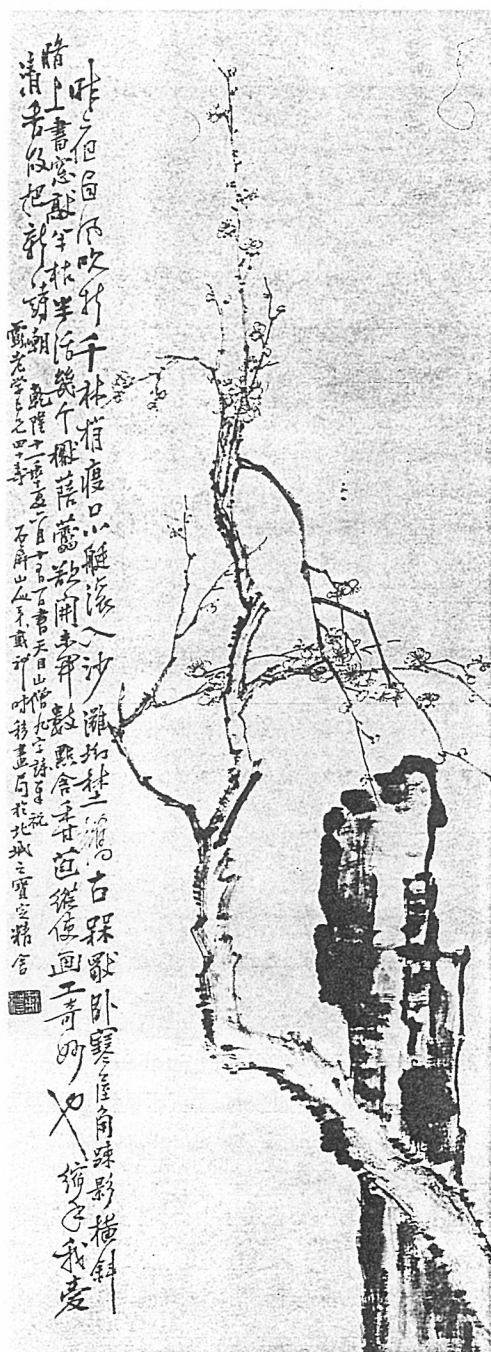 昨夜西風吹折千林梢渡口小艇滾入沙灘坳野古槑獨卧寒屋角踈影橫斜
暗上書窓敲半枯半活幾个擫蓓蕾欲開未開數點含香苞縱使画工奇妙也縮手我愛
清香故把新詩嘲 乾隆十一年夏六月十有日書天目山僧九字詩并祝
老學長兄四十壽 石屏山人 時移畫局於北城之寶定精舍